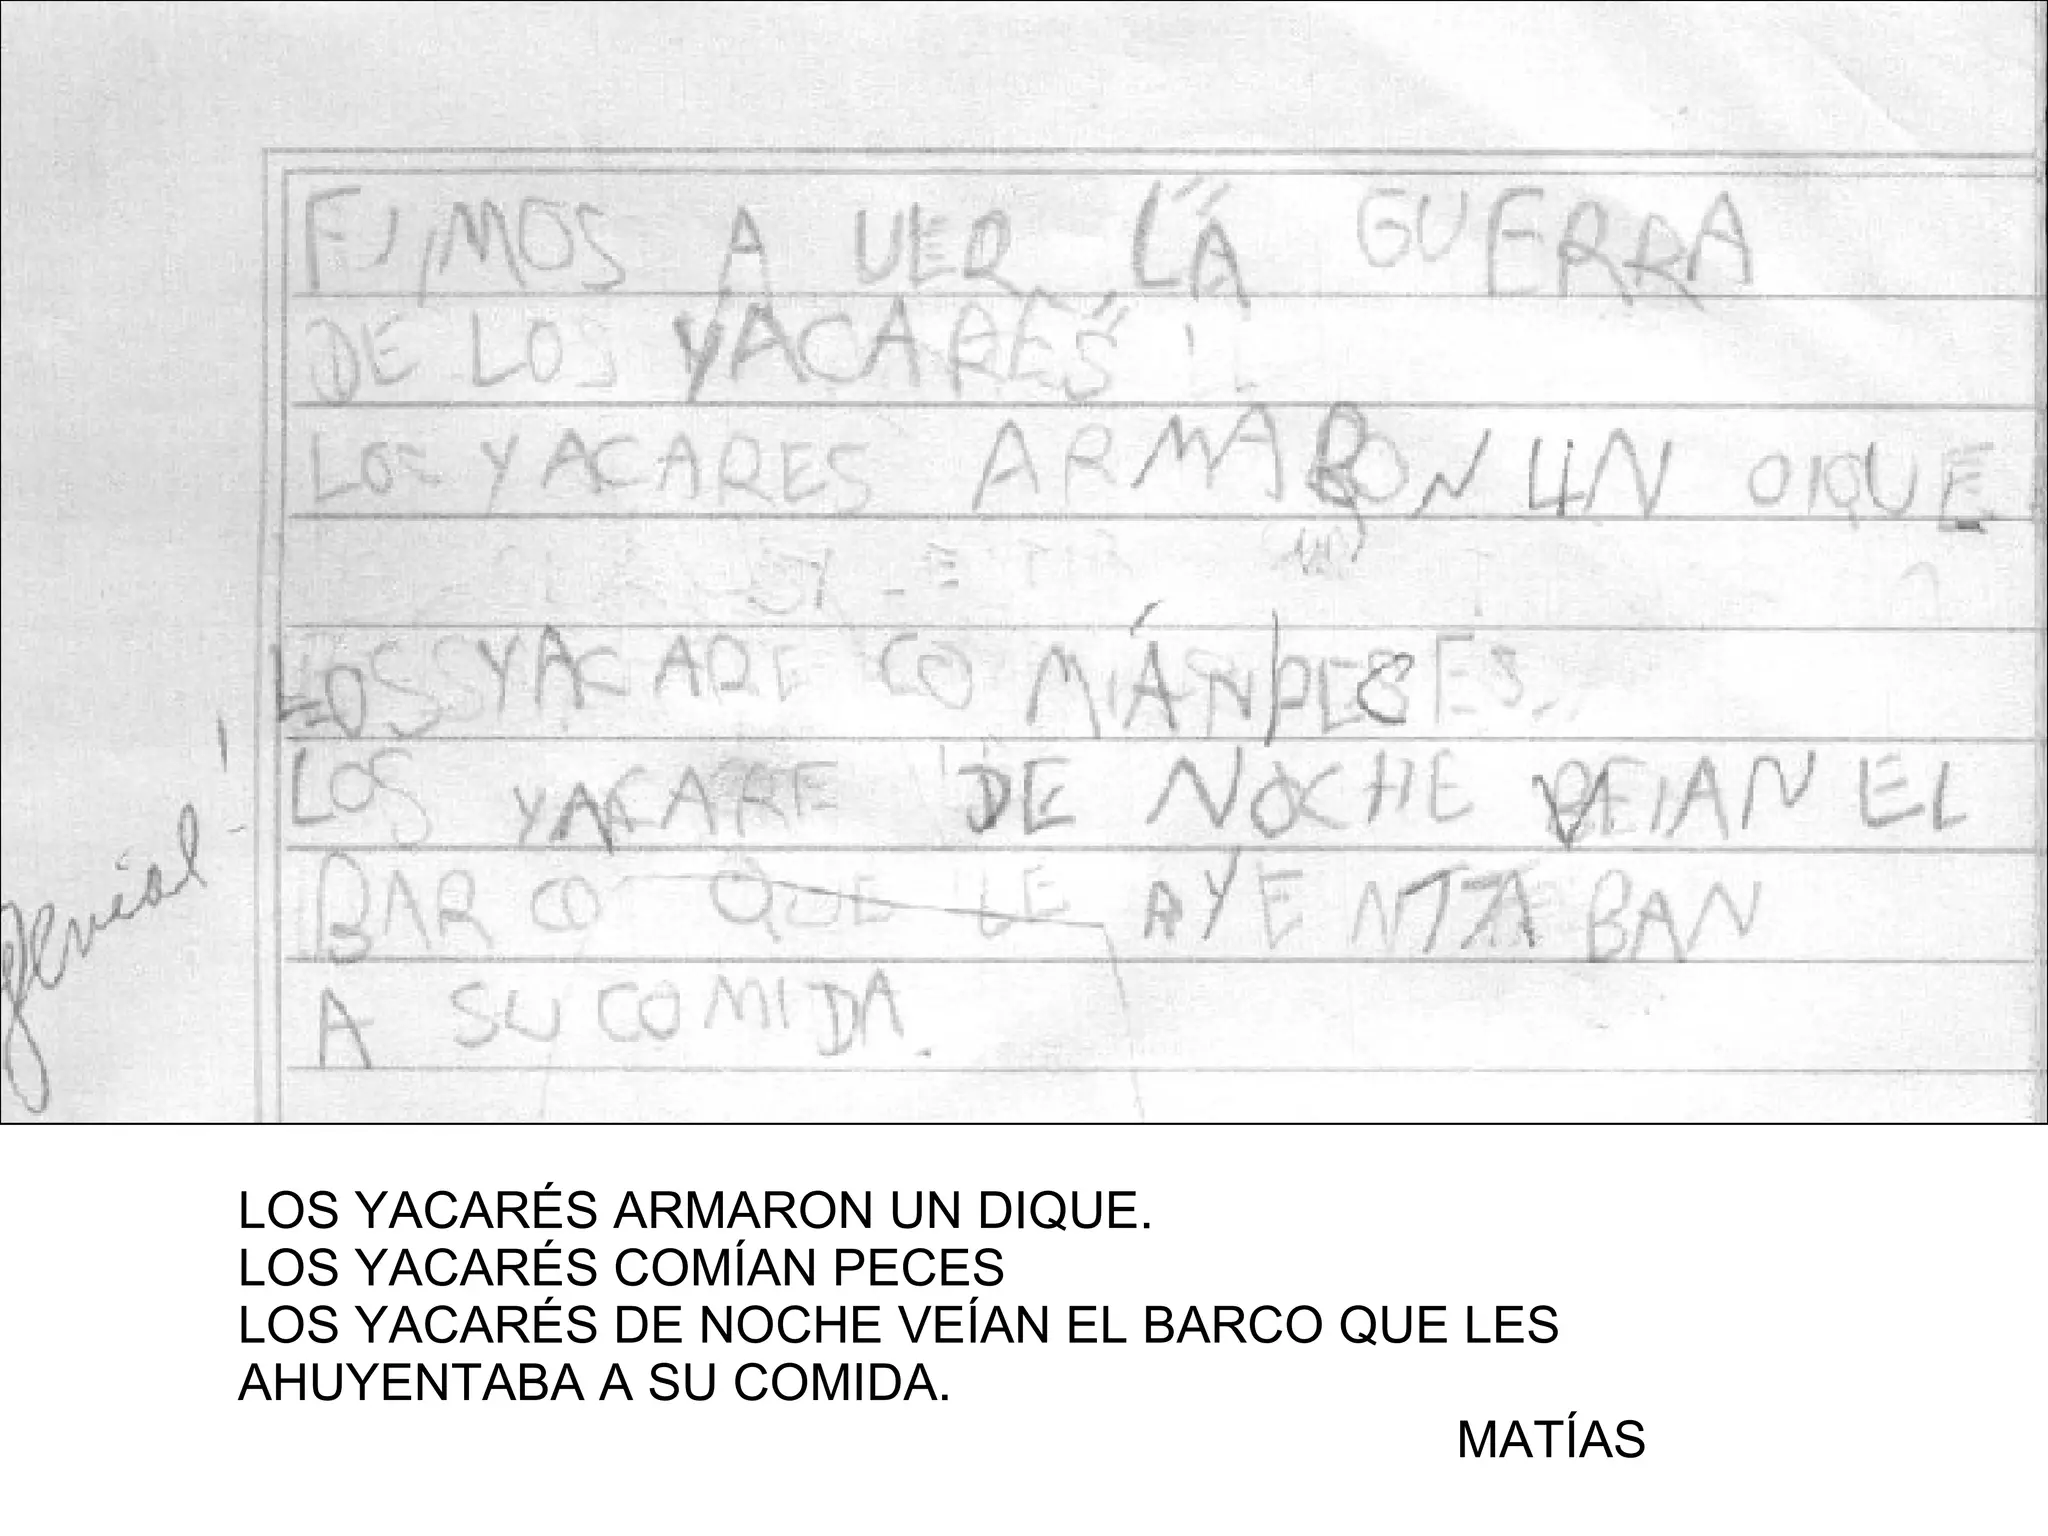 FUIMOS A VER "LA GUERRA
DE LOS YACARÉS"
LOS YACARES ARMARON UN DIQUE
LOS YACARE COMIÁN PESES.
LOS YACARE DE NOCHE VEIAN EL
BARCO QUE LE AYENTABAN
A SU COMIDA.
genial!
LOS YACARÉS ARMARON UN DIQUE.
LOS YACARÉS COMÍAN PECES
LOS YACARÉS DE NOCHE VEÍAN EL BARCO QUE LES
AHUYENTABA A SU COMIDA.
MATÍAS